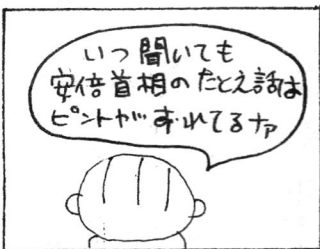 いつ聞いても
安倍首相のたとえ話は
ピントがずれてるナァ